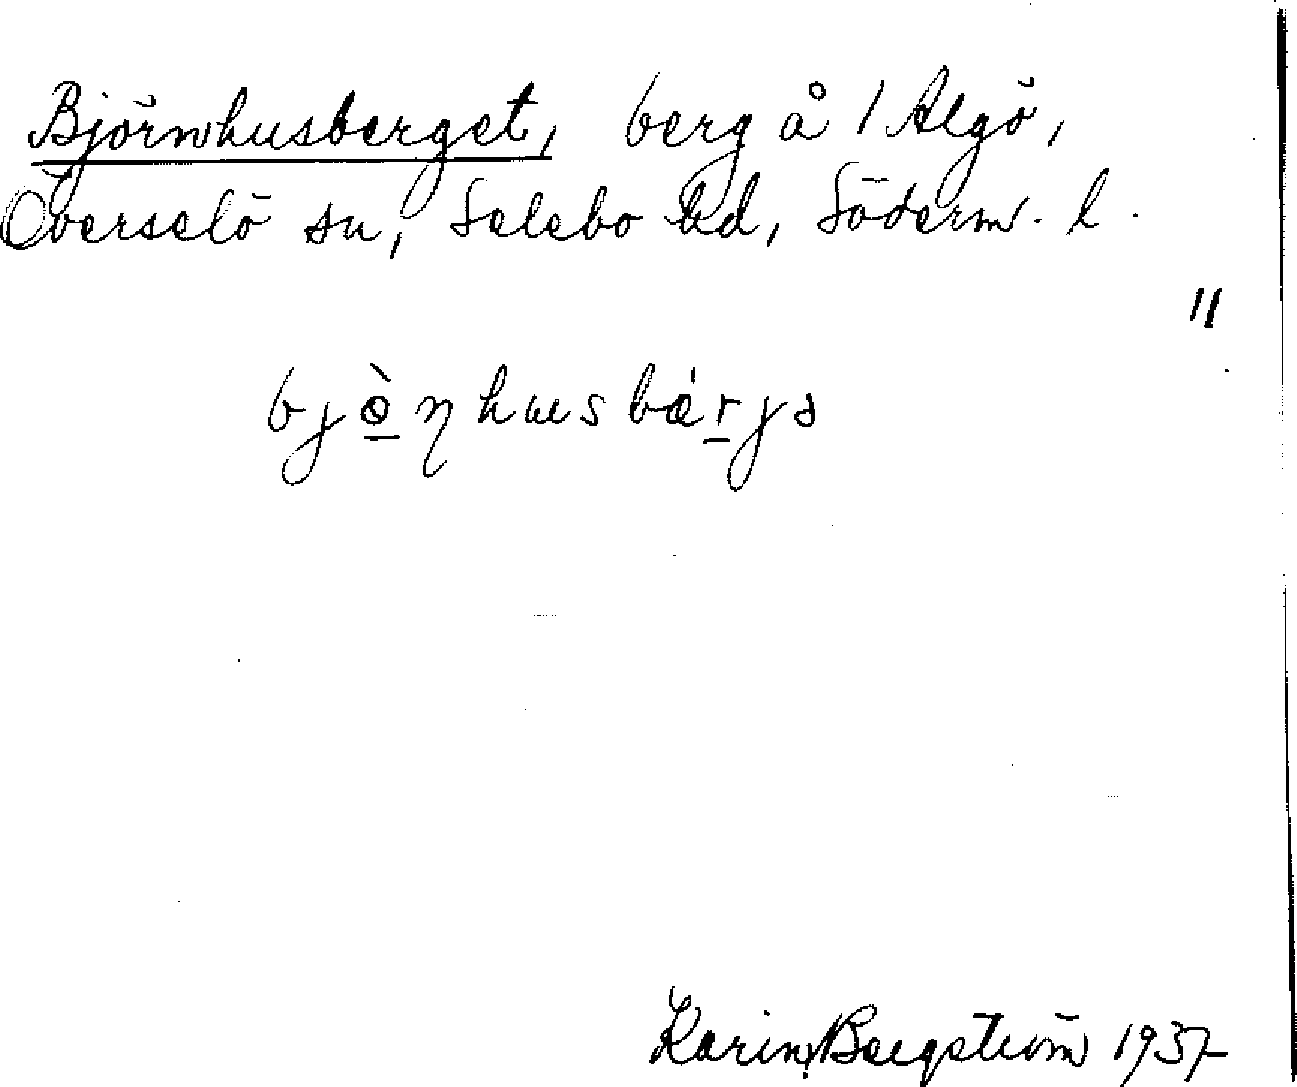 Björnhusberget, berg å 1 Algö,
Överselö sn, Selebo hd, Söderm. l.
"
bjò̱ŋhusbǽṟjə
Karin Bergström 1937